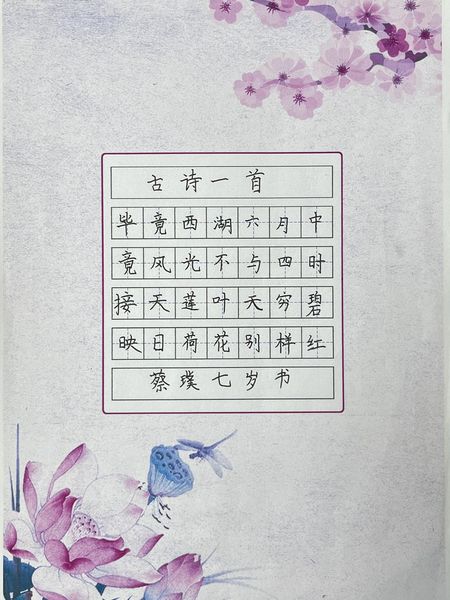 古诗一首
毕竟西湖六月中
竟风光不与四时
接天莲叶天穷碧
映日荷花别样红
蔡璞七岁书